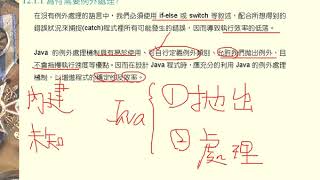 12.1.1 為何需要例外處理?
在沒有例外處理的語言中，我們必須使用 if-else 或 switch 等敘述，配合所想得到的
錯誤狀況來捕捉(catch)程式裡所有可能發生的錯誤，因而導致執行效率的低落。
Java 的例外處理機制具有易於使用、可自行定義例外類別，允許我們拋出例外，且
不會拖慢執行速度等優點。因而在設計 Java 程式時，應充分的利用 Java 的例外處
理機制，以增進程式的穩定性及效率。
內建
未知
Java
① 拋出
② 處理